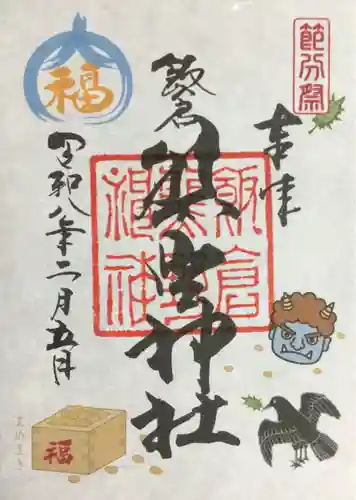 節分祭
奉拝
飯倉
熊野神社
飯倉
熊野
神社
福
令和八年二月五日
福
まめまき